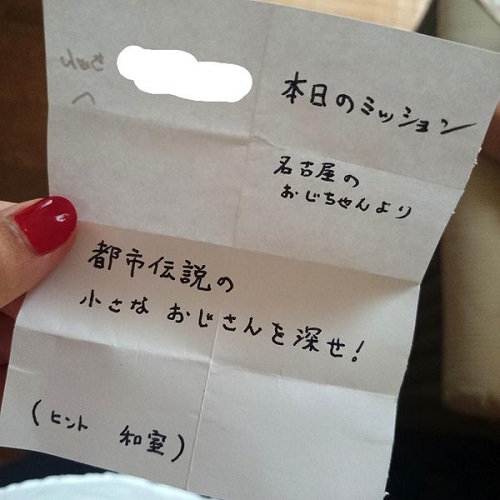 本日のミッション
名古屋の
おじちゃんより
都市伝説の
小さな おじさんを深せ!
(ヒント 和室)
ちゃん
へ